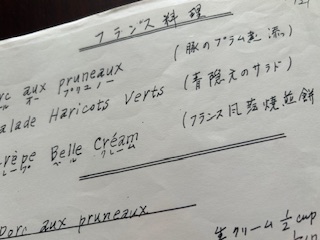 フランス料理
rc aux pruneaux (豚のプラム煮 添)
ル オー プリュノー
alade Haricots Verts (青隠元のサラド)
rêpe Belle Créam (フランス風 焼煎餅)
レープ ベル クレーム
Porc aux pruneaux
生クリーム 1/2 cup